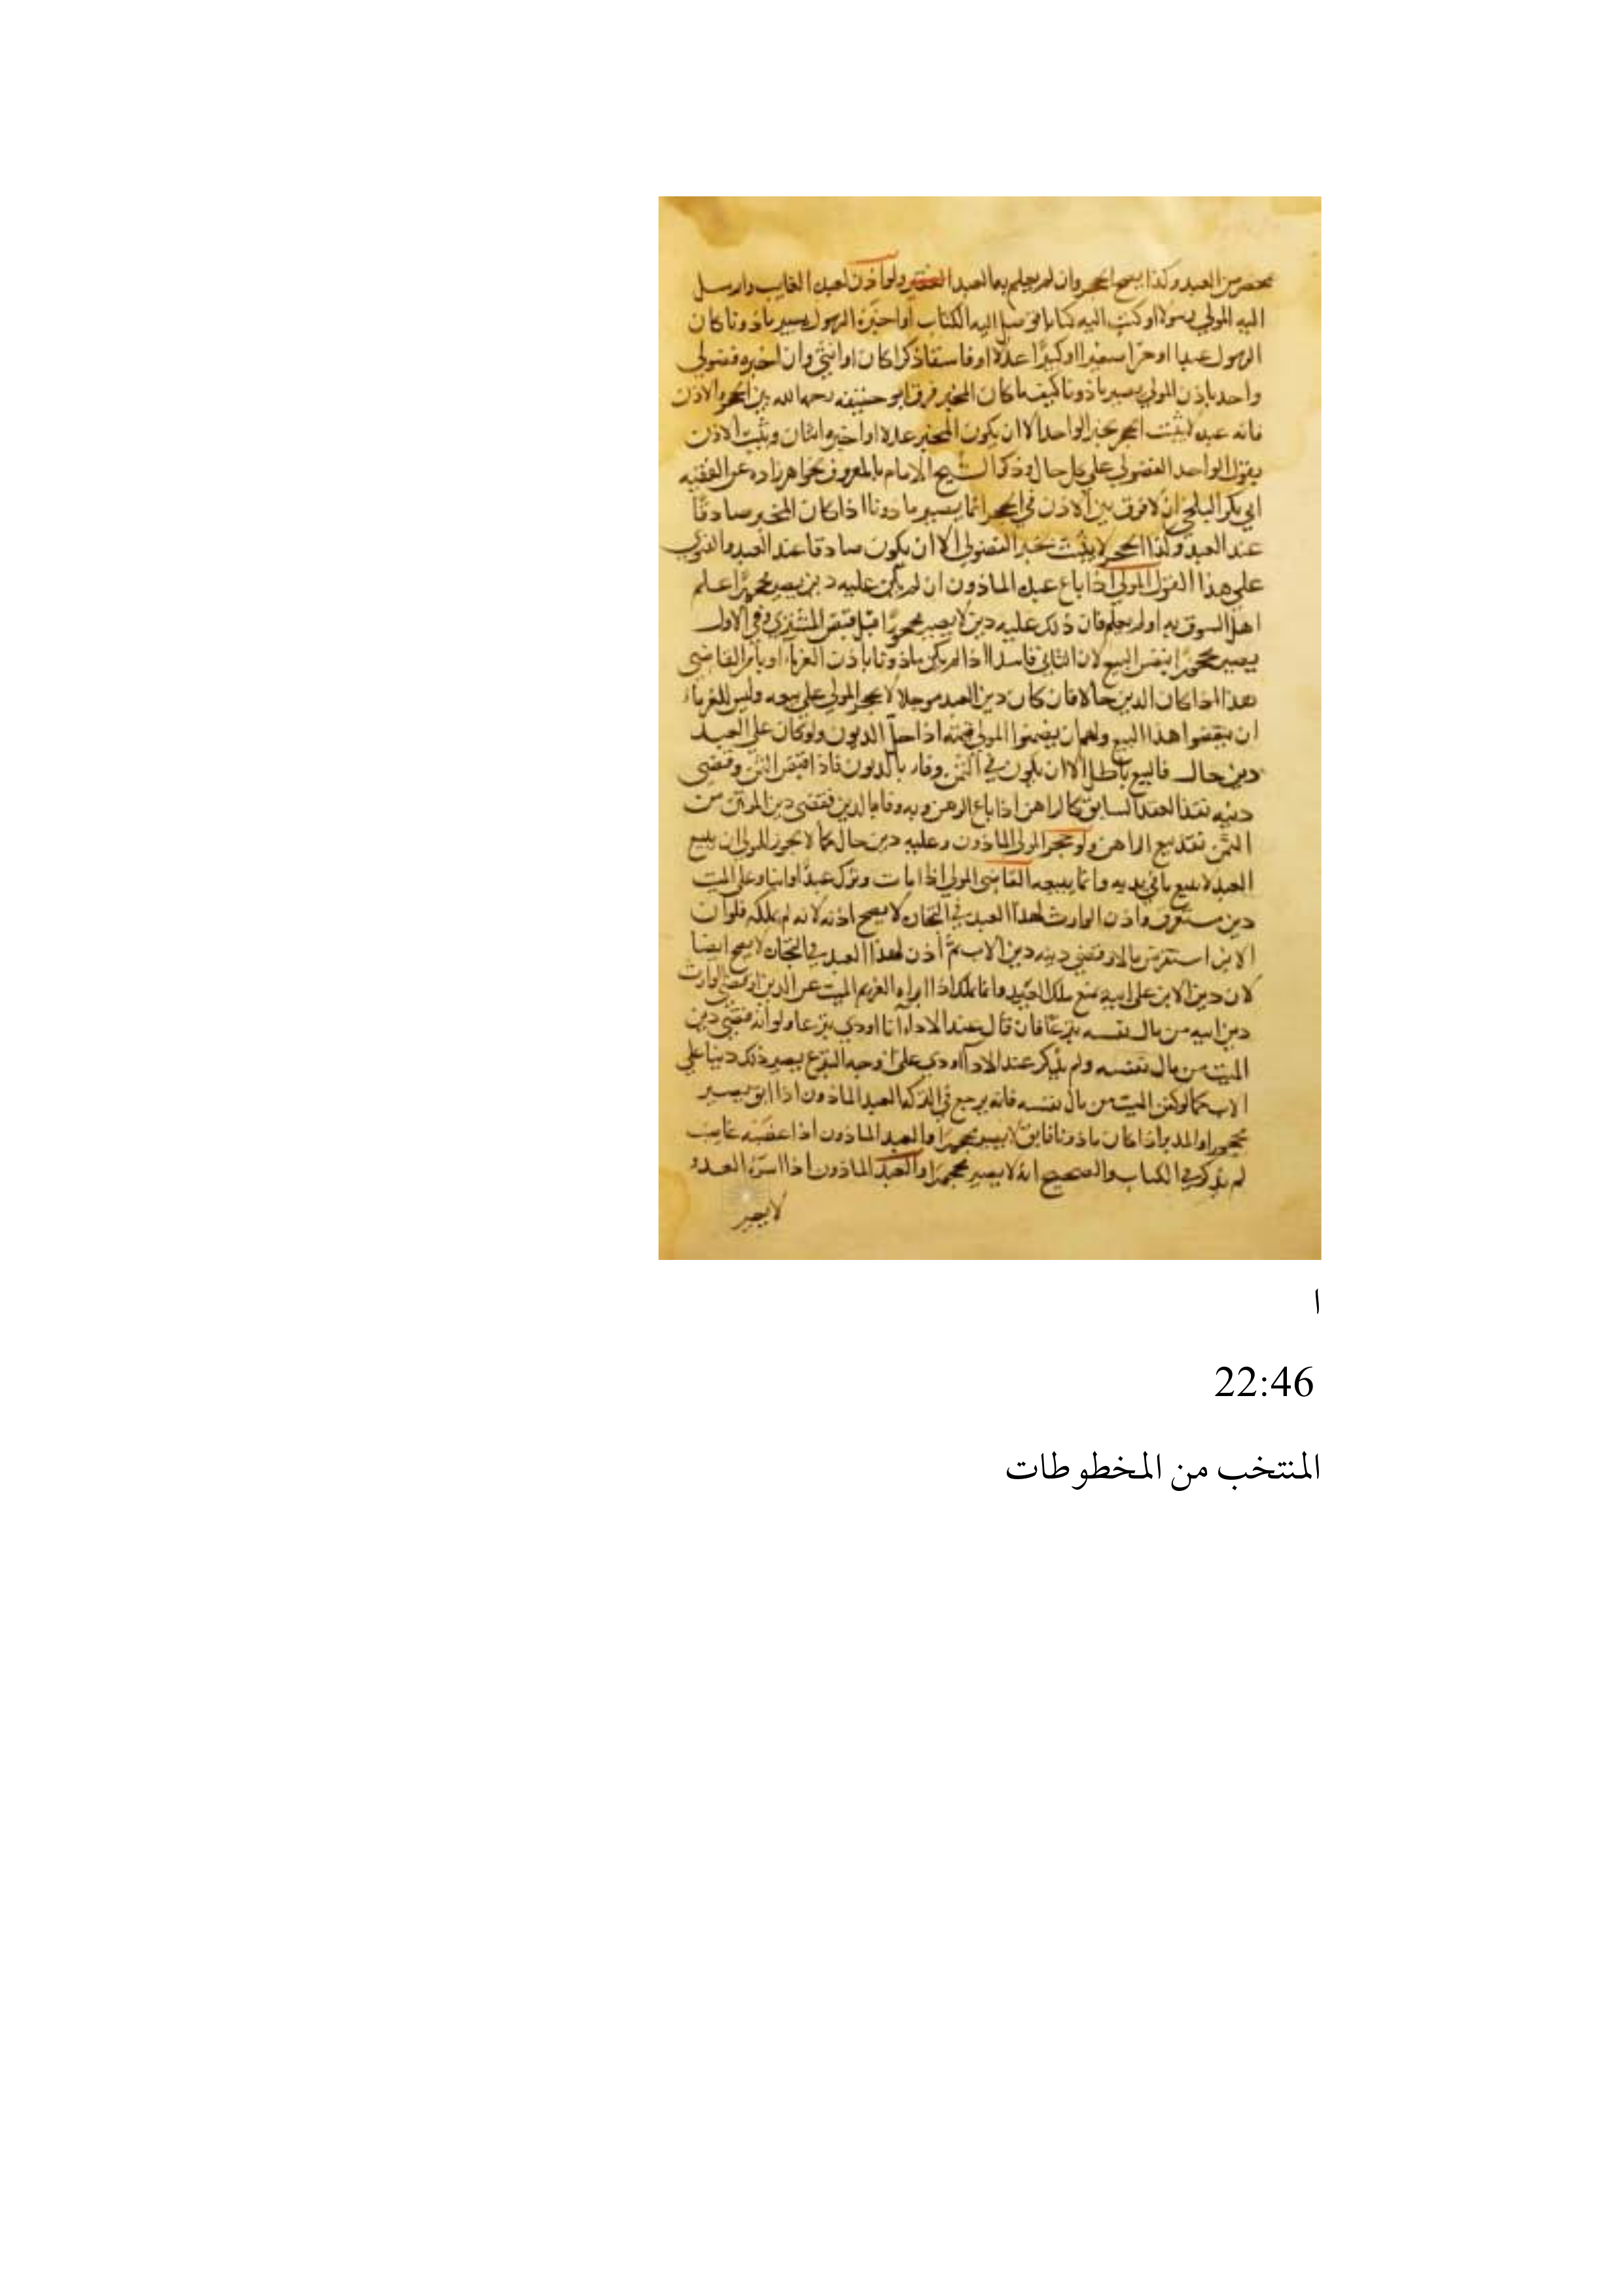 بمحضر من العبد وكذا يصح الحجر وان لم يعلم به العبد ولو اذن لعبده الغايب وارسل
اليه المولي رسولا او كتب اليه كتابا فوصل اليه الكتاب او اخبره الرسول يصير ماذونا كان
الرسول عبدا او حرا صغيرا او كبيرا عدلا او فاسقا ذكرا كان او انثي وان اخبره فضولي
واحد باذن المولي يصير ماذونا كيف ما كان المخبر فرق ابو حنيفه رحمه الله بين الحجر والاذن
فانه عبده لا يثبت الحجر بخبر الواحد الا ان يكون المخبر عدلا او اخبره اثنان ويثبت الاذن
بقول الواحد الفضولي علي كل حال وذكر الشيخ الامام المعروف بخواهرزاده عن الفقيه
ابي بكر البلخي ان لا فرق بين الاذن في الحجر انما يصير ماذونا اذا كان المخبر صادقا
عند العبد وكذا الحجر لا يثبت بخبر الفضولي الا ان يكون صادقا عند العبد والفتوي
علي هذا القول المولي اذا باع عبده الماذون ان لم يكن عليه دين يصير محجورا علم
اهل السوق به اولم يعلم فان ذلك عليه دين لا يصير محجورا قبل قبض المشتري وفي الاول
يصير محجورا بنفس البيع لان الثاني فاسد اذا لم يكن ماذونا باذن الغرماء او بامر القاضي
هذا اذا كان الدين حالا فان كان دين العبد موجلا لا يحجر المولي علي بيعه وليس للغرماء
ان ينقضوا هذا البيع ولهم ان يضمنوا المولي قيمته اذا حل الديون ولو كان علي العبد
دين حال فالبيع باطل الا ان يكون في الثمن وفاء بالديون فاذا قبض الثمن وقضي
دينه نفذ العقد السابق كالراهن اذا باع الرهن وبه وفاء بالدين فقضي دين المرتهن من
الثمن نفذ بيع الراهن ولو حجر المولي الماذون وعليه دين حال كما لا يجوز للمولي ان يبيع
العبد لا يبيع ما في يديه وانما يبيعه القاضي المولي اذا مات وترك عبدا وابنا وعلي الميت
دين مستغرق واذن الوارث لهذا العبد في التجاره لا يصح اذنه لانه لم يملكه فلو ان
الابن استقرض مالا وقضي دينه دين الاب ثم اذن لهذا العبد في التجاره لا يصح ايضا
لان دين الابن علي ابيه يمنع ملك العبيد وانما يملك اذا ابراه الغريم الميت عن الدين او قضي الوارث
دين ابيه من مال نفسه تبرعا فان قال عند الاداء انا اودي تبرعا ولو انه قضي دين
الميت من مال نفسه ولم يذكر عند الاداء اودي علي وجه التبرع يصير ذلك دينا علي
الاب كما لو كفن الميت من مال نفسه فانه يرجع في التركه العبد الماذون اذا ابق يصير
محجورا والمدبر اذا كان ماذونا فابق لا يصير محجورا والعبد الماذون اذا غصبه غاصب
لم يذكر في الكتاب والصحيح انه لا يصير محجورا والعبد الماذون اذا اسره العدو
لا يصير
ا
22:46
المنتخب من المخطوطات